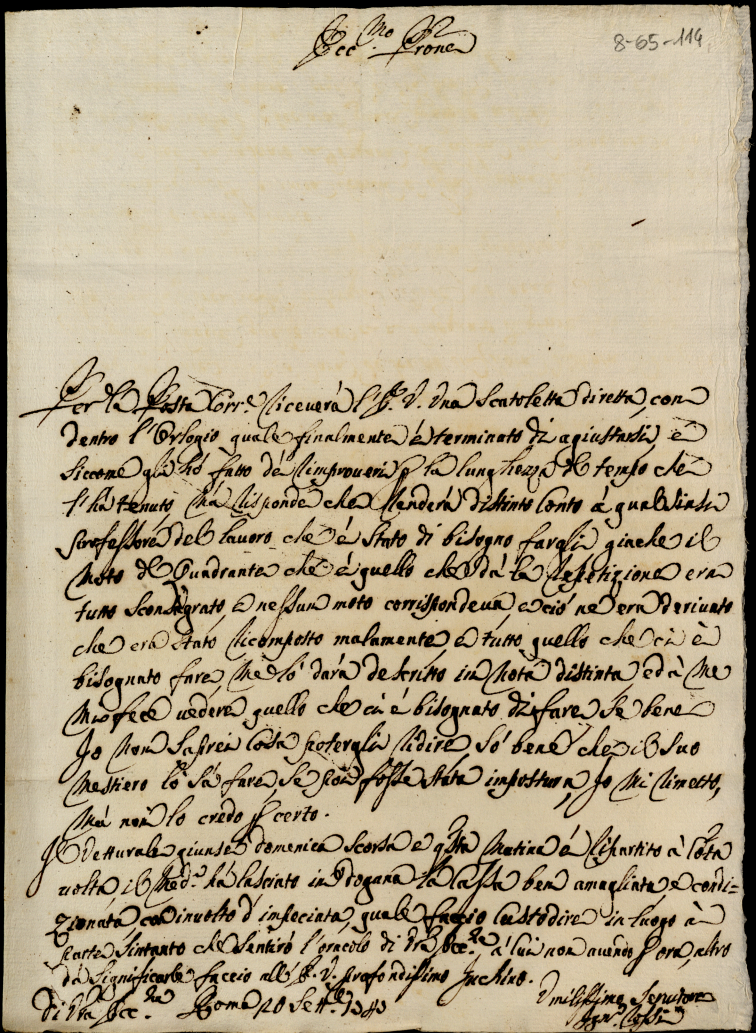 Ecc.mo Prone
8-65-114
Per la Posta Corr.e riceverà l'E. V. una scatoletta diretta, con
dentro l'Orlogio quale finalmente è terminato di agiustarsi, e
siccome gli hò fatto de rimproveri p la lunghezza del tempo che
l'hà tenuto, hà risposde che renderà distinto conto à qualsisia
professore del lavoro che è stato di bisogno fargli, giache il
moto del Quadrante che è quello che dà la repetizione era
tutto sconsagrato e nessun moto corrispondeva, e ciò ne era derivato
che era stato ricomposto malamente, e tutto quello che ci è
bisognato fare me lo darà descritto in nota distinta, ed à me
mi fece vedere quello che ci è bisognato di fare se bene
Io non saprei cosa potergli ridire, sò bene che il suo
mestiero lo sà fare, se poi fosse stata impostura, Io mi rimetto,
mà non lo credo p certo.
Il Vetturale giunse domenica scorsa e q.sta matina è ripartito à cotà
volta il med.o hà lasciato in dogana la cassa ben amagliata, e condi-
zionata, con involto d'impeciata, quale faccio custodire in luogo à
parte sintanto che sentirò l'oracolo di V.ra Ecc.za à lui non avendo p ora, altro
da significarle faccio all'E. V. profondissimo inchino.
Di V.ra Ecc.za Roma 20 Sett.e 1743
Umilissimo Servitore